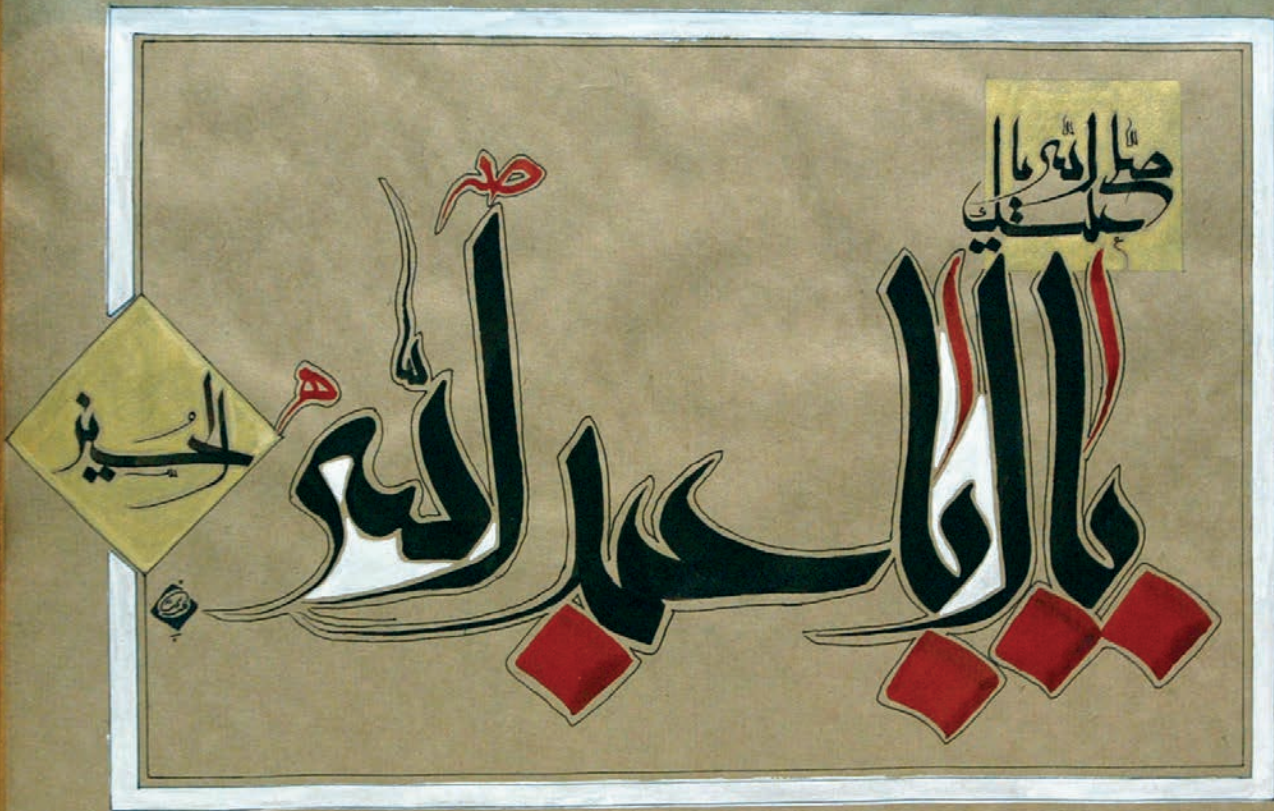 صلّی اللّه علیک یا
یا ابا عبد اللّه
الحُسین